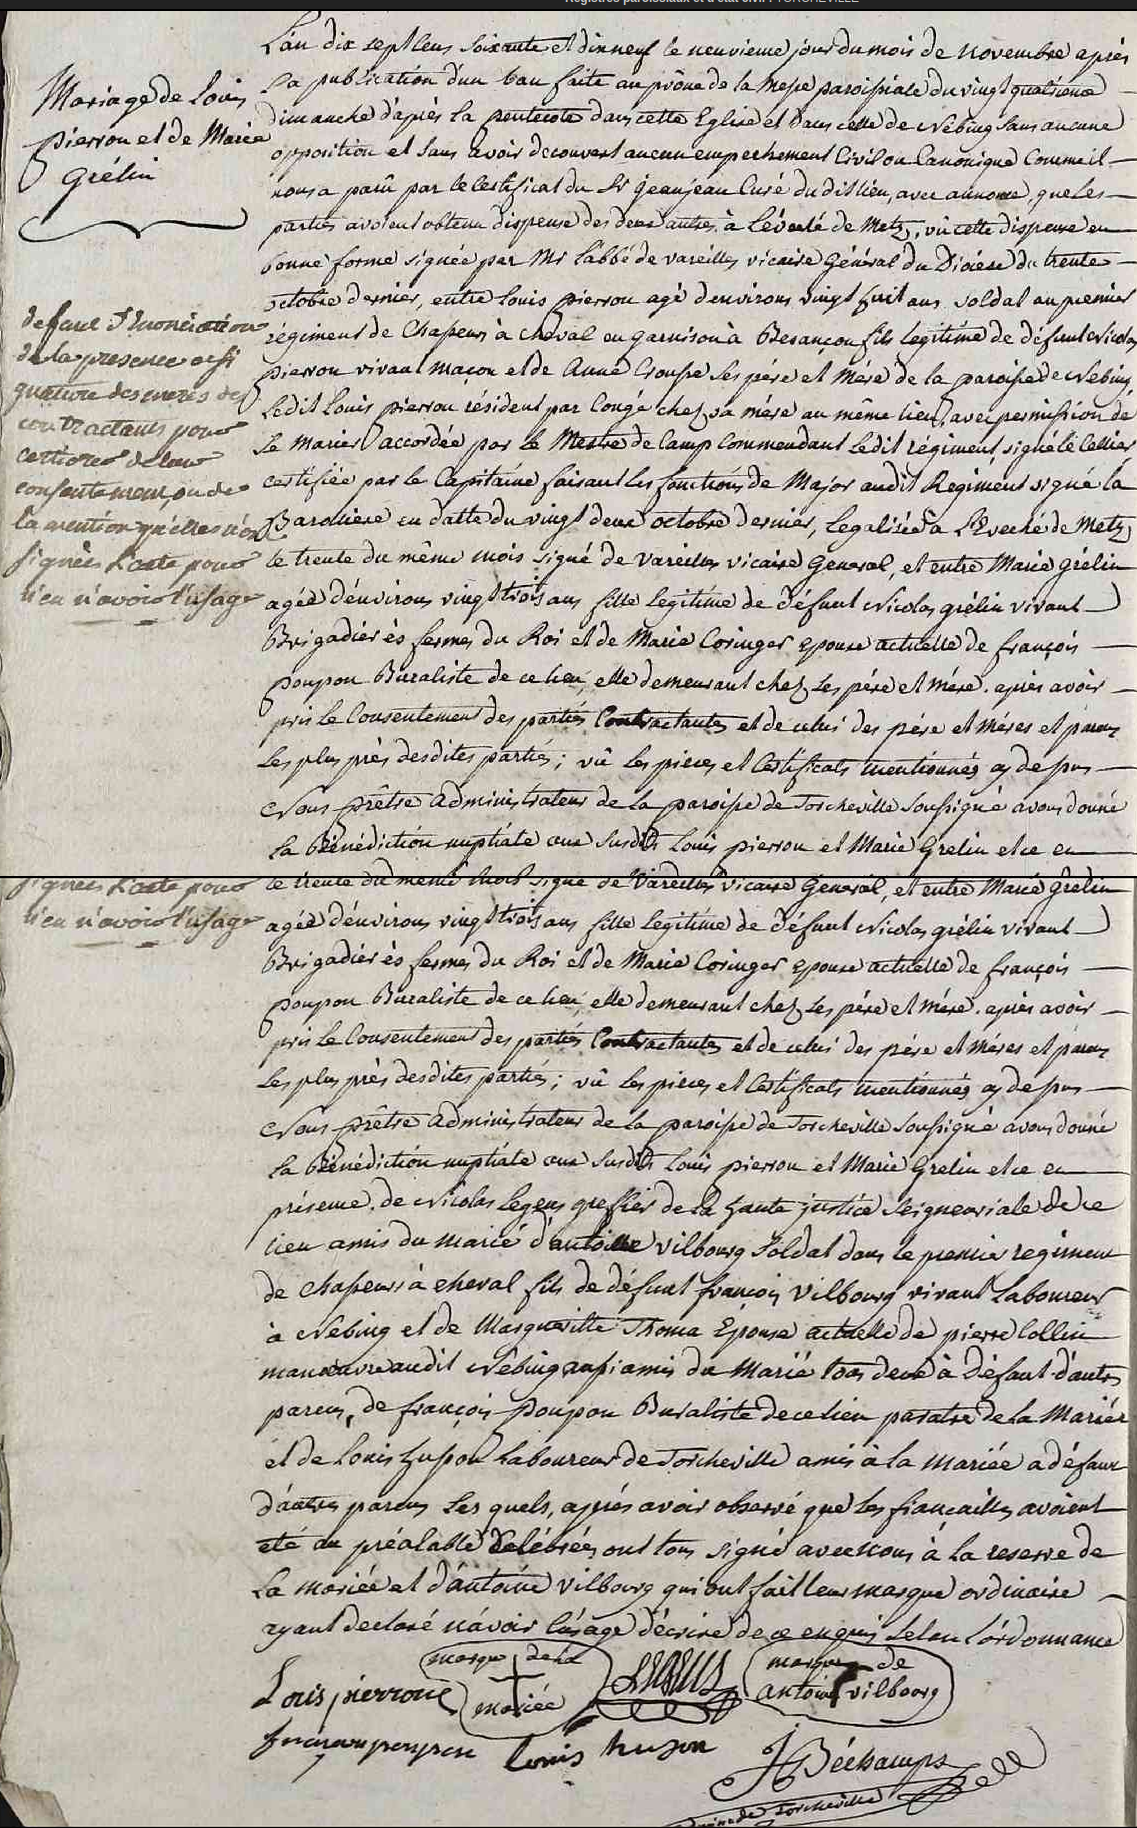 Registres paroissiaux et d'état civil : TORCHEVILLE
Mariage de Louis
pierron et de Marie
Grélin
defaut d'enonciation
de la presence et si
gnature des meres des
contractants pour
certiorer de leur
consentement, ou de
la mention qu'elles n'ont
signées l'acte pour
n'en n'avoir l'usage
L'an dix sept cens soixante et dix neuf le neuvieme jour du mois de Novembre après
la publication d'un ban faite au prône de la Messe paroissiale du vingt quatrieme
dimanche d'après la pentecote dans cette Eglise et dans celle de Nebing sans aucune
opposition et sans avoir decouvert aucun empechement Civil ou Canonique comme il
nous a parû par le Certificat du Sr jeanjean Curé du dit lieu, avec annonce, que les
parties avoient obtenu dispense des deux autres à l'évêché de Metz, vû cette dispense en
bonne forme signée par Mr l'abbé de vareilles vicaire Général du Diocese du trente
octobre dernier, entre Louis pierron agé d'environs vingt huit ans soldat au premier
régiment de Chasseurs à cheval en garnison à Besançon fils legitime de défunt Nicolas
pierron vivant maçon et de Anne Croupe ses pére et Mére de la paroisse de Nebing,
Ledit Louis pierron résident par Congé chez sa mére au même lieu, avec permission de
se marier accordée par le Mestre de Camp Commendant ledit régiment, signé le Cellier
certifiée par le Capitaine faisant les fonctions de Major audit Regiment signé la
Baroliere en datte du vingt deux octobre dernier, legalisée à L'Eveché de Metz
le trente du même mois signé de Vareilles vicaire General, et entre Marie grélin
agée d'environs vingt trois ans fille legitime de défunt Nicolas grélin vivant
Brigadier ès fermes du Roi et de Marie Coringer epouse actuelle de françois
poupon Buraliste de ce lieu, elle demeurant chez ses pére et mére. après avoir
pris le Consentement des parties Contractantes et de celui des pére et méres et parens
les plus près desdites parties; vû les pieces et Certificats mentionnés cy dessus
Nous prêtre administrateur de la paroisse de Torcheville soussigné avons donné
la Bénédiction nuptiale aux susdits Louis pierron et Marie Grelin et ce en
signées l'acte pour
n'en n'avoir l'usage
le trente du même mois signé de Vareilles vicaire General, et entre Marie grélin
agée d'environs vingt trois ans fille legitime de défunt Nicolas grélin vivant
Brigadier ès fermes du Roi et de Marie Coringer epouse actuelle de françois
poupon Buraliste de ce lieu, elle demeurant chez ses pére et mére. après avoir
pris le Consentement des parties Contractantes et de celui des pére et méres et parens
les plus près desdites parties; vû les pieces et Certificats mentionnés cy dessus
Nous prêtre administrateur de la paroisse de Torcheville soussigné avons donné
la Bénédiction nuptiale aux susdits Louis pierron et Marie Grelin et ce en
présence de Nicolas legeus greffier de la haute justice seigneuriale de ce
lieu amis du marié d'antoine vilbourg soldat dans le premier regiment
de Chasseurs à cheval fils de défunt françois Vilbourg vivant Laboureur
à Nebing et de Margueritte Thoma Epouse actuelle de pierre Collin
manoeuvre audit Nébing aussi amis du Marié tous deux à défaut d'autres
parens, de françois poupon Buraliste de ce lieu paratre de la Mariée
et de Louis huson Laboureur de Torcheville amis à la mariée a défaut
d'autres parens Les quels, après avoir observé que les fiancailles avoient
eté au préalable Celébrées, ont tous signé avec nous à la reserve de
la mariée et d'antoine vilbourg qui ont fait leur marque ordinaire
ayant declaré n'avoir l'usage d'écrire de ce enquis selon l'ordonnance
Louis pierrone
marque de la
mariée
LEGEUS
marque de
antoine vilbourg
francois poupon
louis huson
Béchamps
de Torcheville